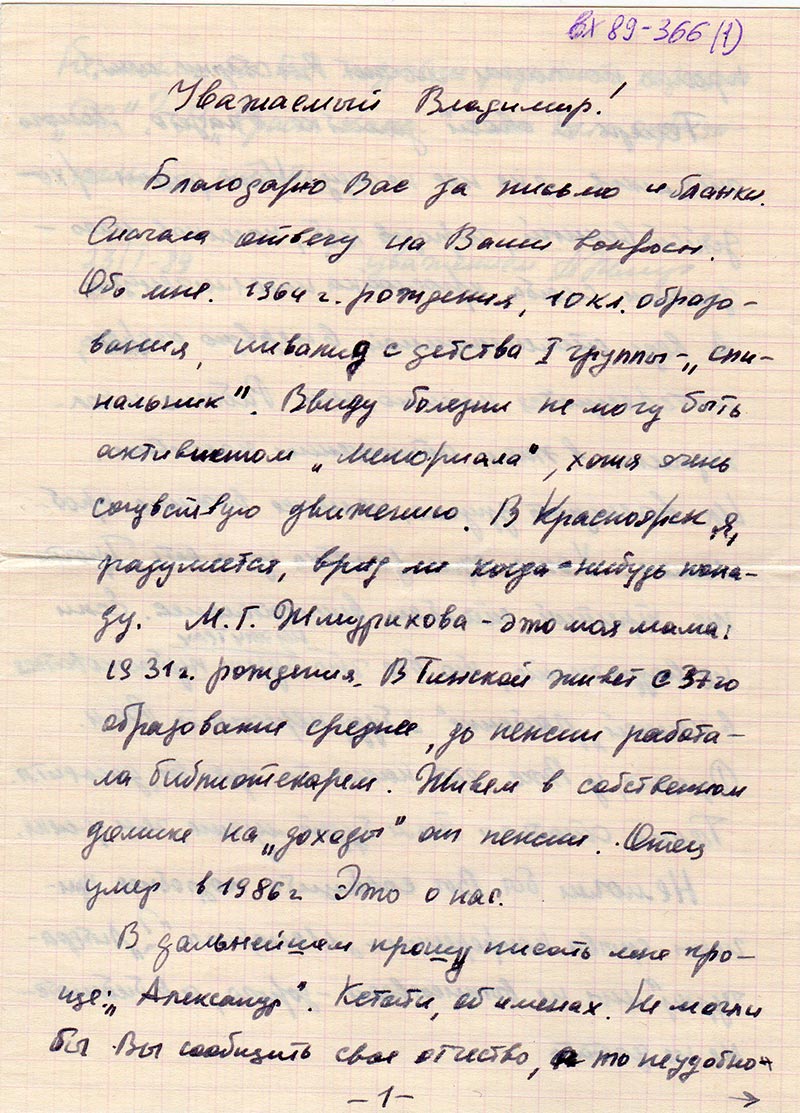 вх 89-366 (1)
Уважаемый Владимир!
Благодарю Вас за письмо и бланки.
Сначала отвечу на Ваши вопросы.
Обо мне. 1964 г. рождения, 10 кл. образо-
вания, инвалид с детства I группы - „спи-
нальник". Ввиду болезни не могу быть
активистом „Мемориала", хотя очень
сочувствую движению. В Красноярск я,
разумеется, вряд ли когда-нибудь попа-
ду. М. Г. Жмурикова - это моя мама:
1931 г. рождения. В Тинской живет с 37го
образование среднее, до пенсии работа-
ла библиотекарем. Живем в собственном
домике на „доходы" от пенсии. Отец
умер в 1986 г. Это о нас.
В дальнейшем прошу писать мне про-
ще: „Александр". Кстати, об именах. Не могли
бы Вы сообщить свое отчество, а то неудобно
-1- →